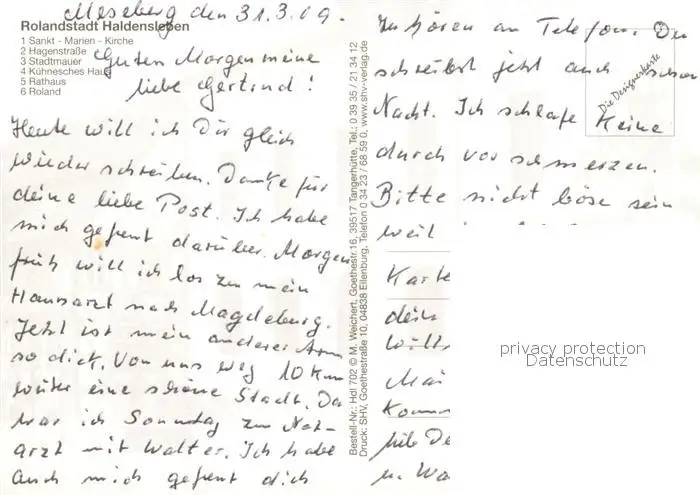 Meseberg den 31.3.09.
Rolandstadt Haldensleben
1 Sankt - Marien - Kirche
2 Hagenstraße
3 Stadtmauer
4 Kühnesches Haus
5 Rathaus
6 Roland
Guten Morgen meine
liebe Gertrud!
Heute will ich Dir gleich
wieder schreiben. Danke für
deine liebe Post. Ich habe
mich gefreut darüber. Morgen
früh will ich los zu mein
Hausarzt nach Magdeburg.
Jetzt ist mein anderer Arm
so dick. Von uns weg 10 Km
weiter eine schöne Stadt. Da
war ich Sonntag zum Not-
arzt mit Walter. Ich habe
auch mich gefreut dich
Bestell-Nr.: Hdl 702 © M. Weichert, Goethestr.16, 39517 Tangerhütte, Tel.: 0 39 35 / 21 34 12
Druck: SHV, Goethestraße 10, 04838 Eilenburg, Telefon 0 34 23 / 68 59 0, www.shv-verlag.de
Zu hören am Telefon. Du
schreibst jetzt auch schon
Die Designerkarte
Nacht. Ich schlafe keine
durch vor schmerzen.
Bitte nicht böse sein
weil
Karte
dein
will
Mai
Komm
hile De
u. Wa
privacy protection
Datenschutz